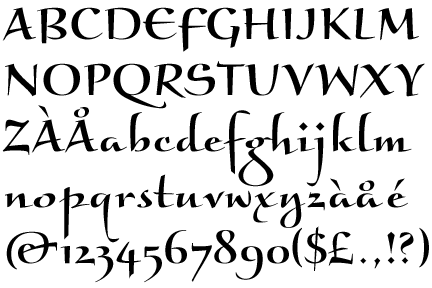 ABCDEFGHIJKLM
NOPQRSTUVWXY
ZÀÅabcdefghijklm
nopqrstuvwxyzàåé
(&1234567890($£.,!?)